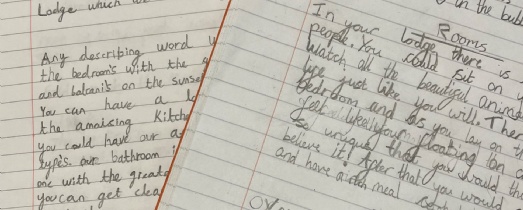 Lodge which
Any describing word
the bedrooms with the
and balconi's on the sunset
You can have a
the amaising Kitche
you could have our
type's our bathroom
one with the great
you can get clea
in the bu
Rooms
In your lodge there is
people. You could sit on
Watch all the beautiful anim
live just like you will. The
bedroom and as you lay on t
feel like your floating on
so unique that you would th
believe it! After that you would
and have a rich meal